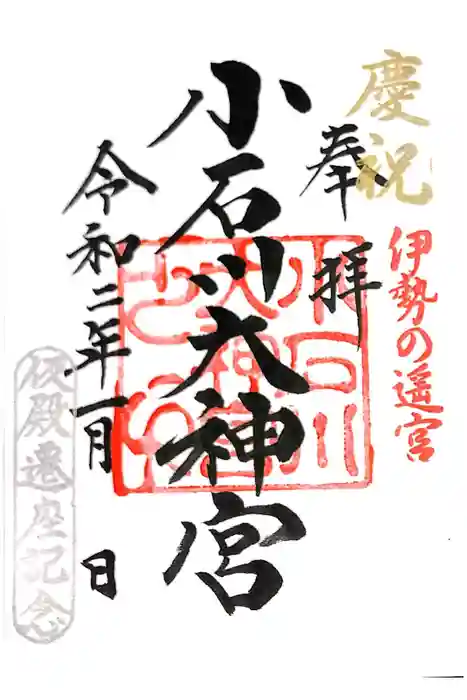 慶祝
奉拝
伊勢の遥宮
小石川大神宮
小石川大神宮
令和二年一月 日
仮殿遷座記念